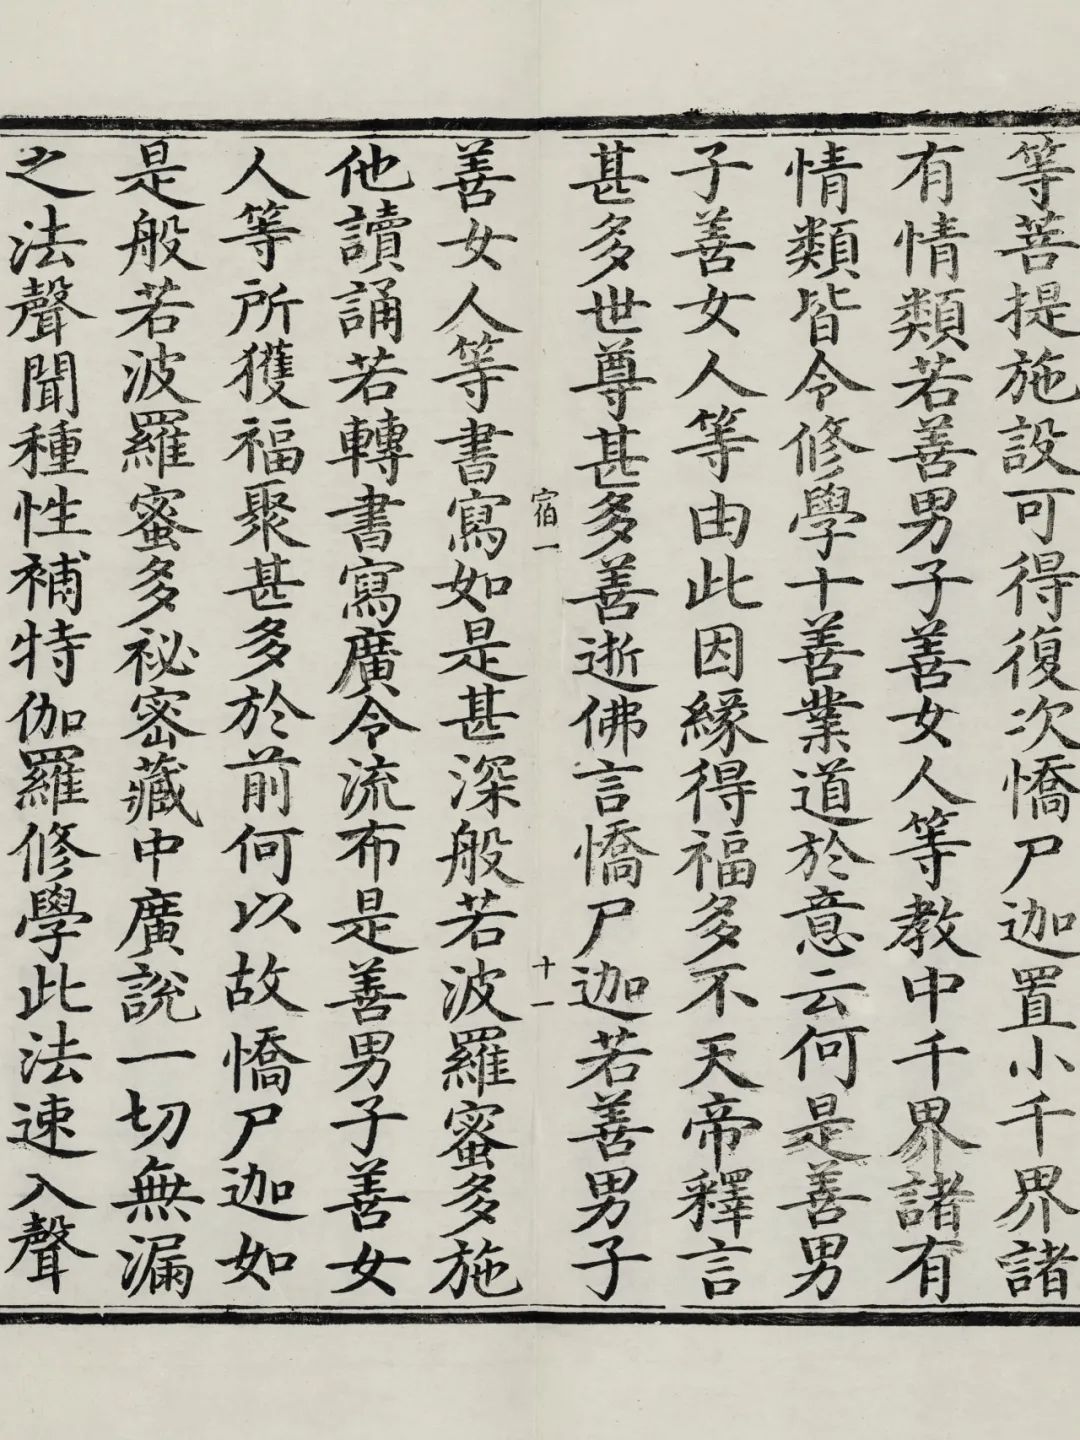 等菩提施設可得復次憍尸迦置小千界諸
有情類若善男子善女人等教中千界諸有
情類皆令修學十善業道於意云何是善男
子善女人等由此因緣得福多不天帝釋言
甚多世尊甚多善逝佛言憍尸迦若善男子
宿一
十一
善女人等書寫如是甚深般若波羅蜜多施
他讀誦若轉書寫廣令流布是善男子善女
人等所獲福聚甚多於前何以故憍尸迦如
是般若波羅蜜多祕密藏中廣說一切無漏
之法聲聞種性補特伽羅修學此法速入聲